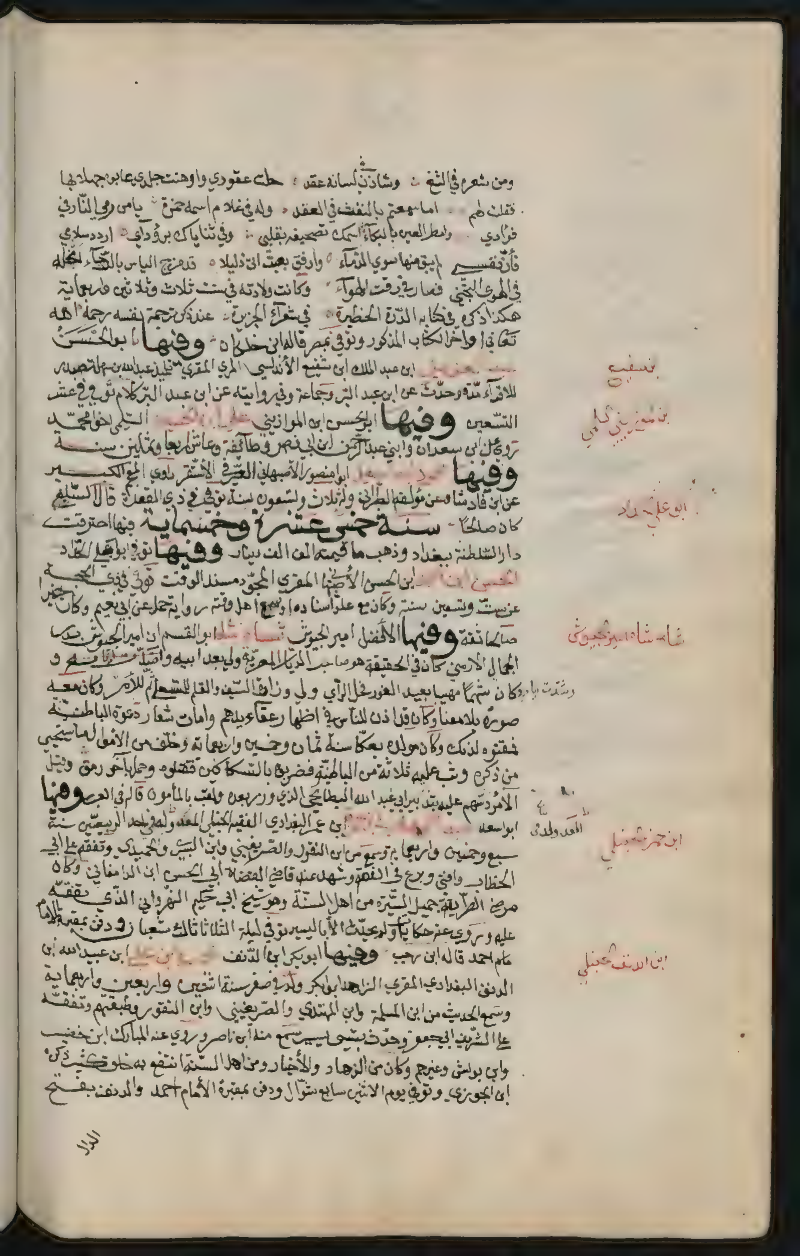 ومن شعره في الثغ وشادن لسانه عقد حلت عقودي واوهنت جلدي عابوه جهلا بها
فقلت لهم اما سمعتم بالنفث في العقد وله في غلام اسمه حمزة يا من رمى النار في
فؤادي وامطر العين بالبكاء اسمك تصحيفه بقلبي وفي ثناياك برؤ دائي اردد سلامي
فان نفسي لم يبق منها سوى الذماء وارفق بصب اتى ذليلا قد مزج الياس بالرجاء انحله
في الهوى التجني فصار في رقة الهواء وكانت ولادته في سنة ثلاث وثلاثين واربعماية
هكذا ذكره في كتابه الدرة الخطيرة في شعراء الجزيرة عند ذكر ترجمة نفسه رحمه الله
تعالى اواخر الكتاب المذكور وتوفي بمصر قاله ابن خلكان وفيها ابو الحسن
ابن عبد الملك ابن شفيع الأندلسي المري المقري تلميذ عبد الله بن سهل تصدر
للاقراء مدة وحدث عن ابن عبد البر وجماعة وفي روايته عن ابن عبد البر كلام توفي في عشر
التسعين وفيها ابو الحسن ابن الموازيني علي ابن الحسن السلمي اخو محمد
روى عن ابن سعدان وابني عبد الرحمن ابن ابي نصر وطائفة وعاش اربعا وثمانين سنة
وفيها ابو منصور الأصبهاني الصيرفي الأشقر راوي المعجم الكبير
عن ابن فاذشاه عن مؤلفه الطبراني وله ثلاث وتسعون سنة توفي في ذي القعدة قال السلفي
كان صالحا سنة خمس عشرة وخمسماية فيها احترقت
دار السلطنة ببغداد وذهب ما قيمته الف الف دينار وفيها توفي ابو علي الحداد
الحسن ابن احمد ابن الحسن الأصبهاني المقري المجود مسند الوقت توفي في ذي الحجة
عن ست وتسعين سنة وكان مع علو اسناده اوسع اهل وقته رواية حمل عن ابي نعيم وكان خيرا
صالحا ثقة وفيها الأفضل امير الجيوش شاهنشاه ابو القسم ابن امير الجيوش بدر
الجمالي الارمني كان في الحقيقة هو صاحب الديار المصرية ولي بعد ابيه وامتدت ايامه و
وكان شهما مهيبا بعيد الغور فحل الراي ولي وزارة السيف والقلم للمستعلي ثم للآمر وكان معه
صورة بلا معنى وكان قد اذن للناس في اظهار عقايدهم وامات شعار دعوة الباطنية
فمقتوه لذلك وكان مولده بعكا سنة ثمان وخمسين واربعماية وخلف من الأموال ما يستحيى
من ذكره وثب عليه ثلاثة من الباطنية فضربوه بالسكاكين فقتلوه وحمل بآخر رمق وقيل
الآمر دسهم عليه بتدبير ابي عبد الله البطايحي الذي وزر بعده ولقب بالمأمون قاله في العبر وفيها
ابو سعد ابن علي البغدادي الفقيه الحنبلي المعدل ولد في احد الربيعين سنة
سبع وخمسين واربعماية وسمع من ابن النقور والصريفيني وابن البسري والحميدي وتفقه على ابي
الخطاب وافتى وبرع في الفقه وشهد عند قاضي القضاة ابي الحسن ابن الدامغاني وكان
مرضي الطريقة جميل السيرة من اهل السنة وهو شيخ ابي حكيم النهرواني الذي تفقه
عليه وتروى عنه حكايات ولم يحدث الا باليسير توفي ليلة الثلاثا ثالث شعبان ودفن بمقبرة الامام
احمد قاله ابن رجب وفيها ابو بكر ابن الدنف محمد بن علي ابن عبيد الله ابن
الدنف البغدادي المقري الزاهد ابو بكر ولد في صفر سنة اثنتين واربعين واربعماية
وسمع الحديث من ابن المسلمة وابن المهتدي والصريفيني وابن النقور وطبقتهم وتفقه
على الشريف ابي جعفر وحدث بشيء يسير سمع منه ابن ناصر وروى عنه المبارك ابن خضير
وابن بوش وغيرهم وكان من الزهاد والأخيار ومن اهل السنة انتفع به خلق كثير ذكره
ابن الجوزي وتوفي يوم الاثنين سابع شوال ودفن بمقبرة الأمام احمد والدنف بفتح
الدال
بن شفيع
بن موازيني سلمي
ابو علي حداد
شاهنشاه امير جيوش
ابن حمزه حنبلي
ابن الدنف حنبلي